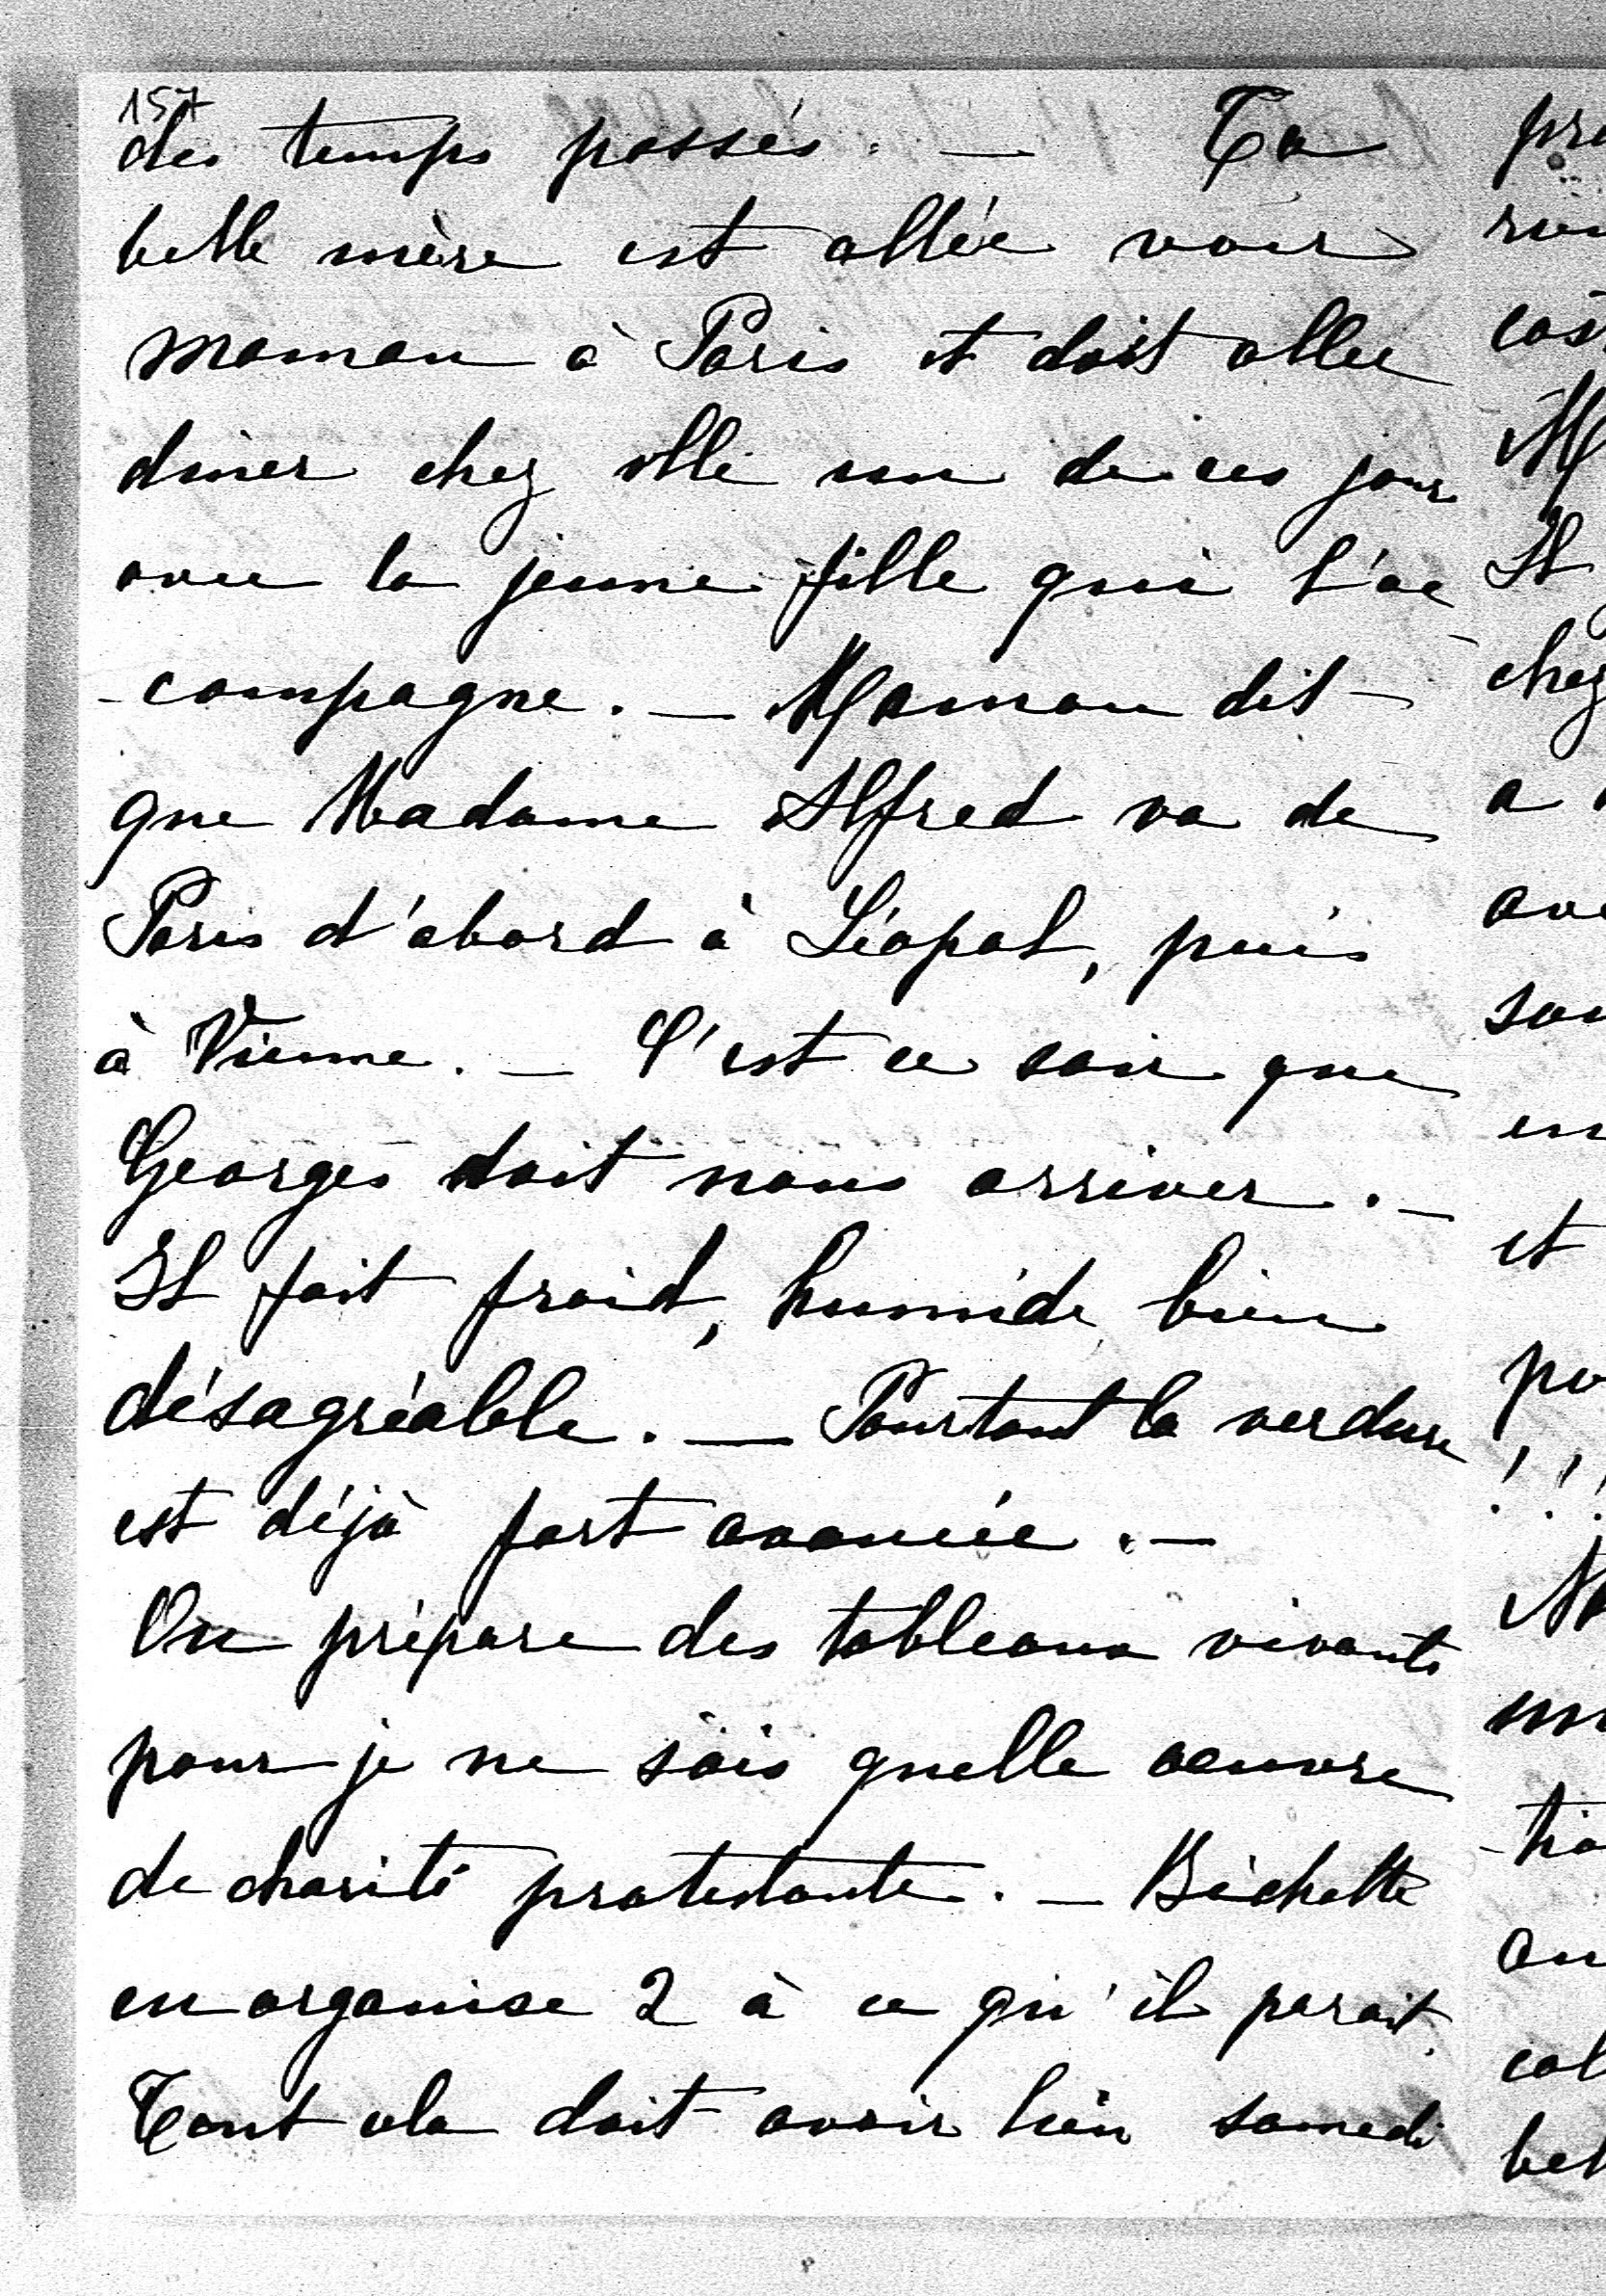 157
des temps passés. — Ta
belle mère est allée voir
maman à Paris et doit aller
diner chez elle un de ces jours
avec la jeune fille qui l'ac
-compagne. — Maman dit
que Madame Alfred va de
Paris d'abord à Léopol, puis
à Vienne. — C'est ce soir que
Georges doit nous arriver. —
Il fait froid, humide bien
désagréable. — Pourtant la verdure
est déjà fort avancée. —
On prépare des tableaux vivants
pour je ne sais quelle oeuvre
de charité protestante. — Bichette
en organise 2 à ce qu'il parait.
Tout cela doit avoir lieu samedi